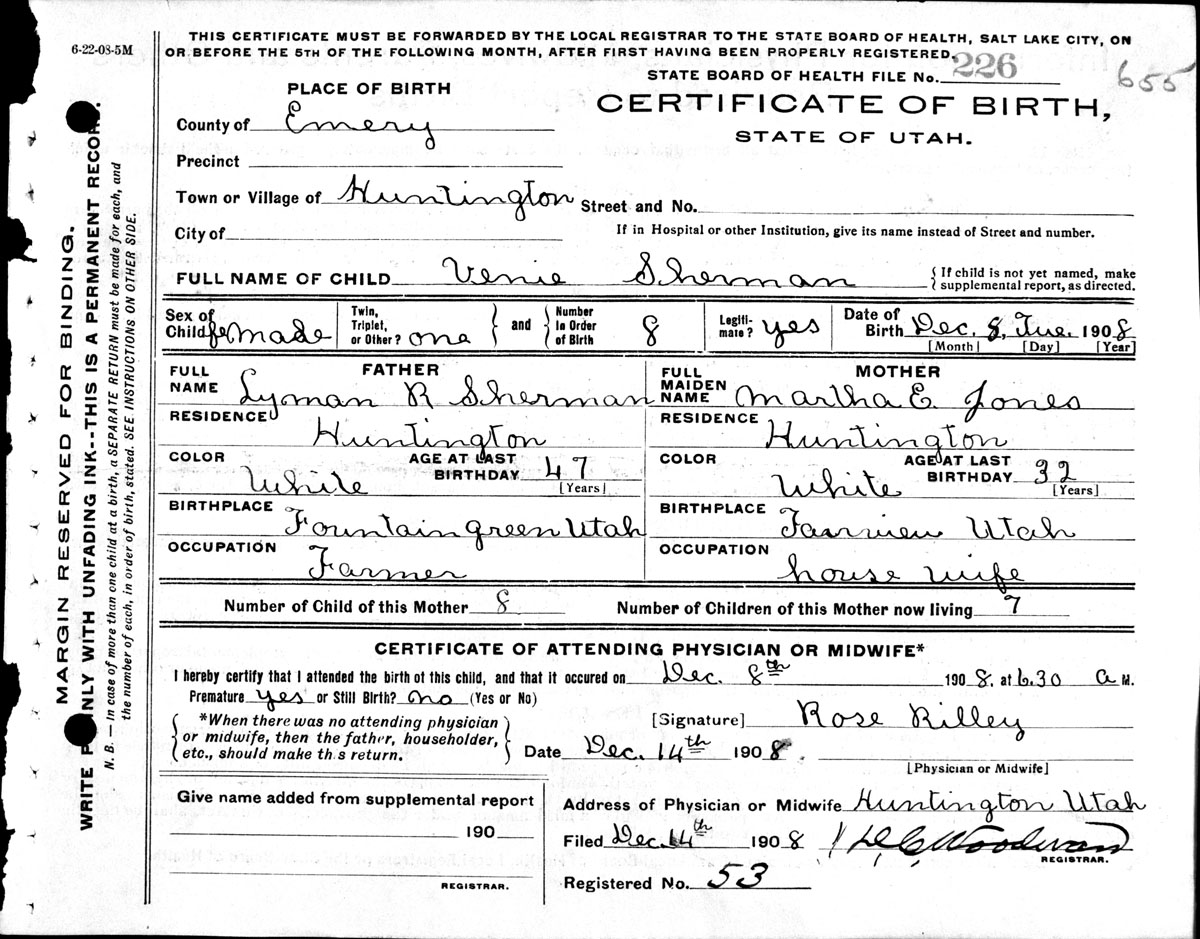 6-22-08-5M
THIS CERTIFICATE MUST BE FORWARDED BY THE LOCAL REGISTRAR TO THE STATE BOARD OF HEALTH, SALT LAKE CITY, ON
OR BEFORE THE 5TH OF THE FOLLOWING MONTH, AFTER FIRST HAVING BEEN PROPERLY REGISTERED.
STATE BOARD OF HEALTH FILE No. 226
655
PLACE OF BIRTH
CERTIFICATE OF BIRTH,
STATE OF UTAH.
County of Emery
Precinct
Town or Village of Huntington Street and No.
City of If in Hospital or other Institution, give its name instead of Street and number.
FULL NAME OF CHILD Venie Sherman { If child is not yet named, make
supplemental report, as directed.
Sex of
Child female
Twin,
Triplet,
or Other? one
and
Number
in Order
of Birth 8
Legiti-
mate? yes
Date of
Birth Dec. 8, Tue. 1908
[Month] [Day] [Year]
FATHER
FULL
NAME Lyman R Sherman
RESIDENCE
Huntington
COLOR White AGE AT LAST
BIRTHDAY 47
[Years]
BIRTHPLACE
Fountain green Utah
OCCUPATION
Farmer
MOTHER
FULL
MAIDEN
NAME Martha E. Jones
RESIDENCE
Huntington
COLOR White AGE AT LAST
BIRTHDAY 32
[Years]
BIRTHPLACE
Fairview Utah
OCCUPATION
house wife
Number of Child of this Mother 8 Number of Children of this Mother now living 7
CERTIFICATE OF ATTENDING PHYSICIAN OR MIDWIFE*
I hereby certify that I attended the birth of this child, and that it occured on Dec. 8th 1908. at 6.30 a M.
Premature yes or Still Birth? no (Yes or No)
{ *When there was no attending physician
or midwife, then the father, householder,
etc., should make this return. }
[Signature] Rose Rilley
Date Dec. 14th 1908.
[Physician or Midwife]
Give name added from supplemental report
190
REGISTRAR.
Address of Physician or Midwife Huntington Utah
Filed Dec. 14th 1908
REGISTRAR.
Registered No. 53
MARGIN RESERVED FOR BINDING.
WRITE ONLY WITH UNFADING INK--THIS IS A PERMANENT RECORD.
N. B. — In case of more than one child at a birth, a SEPARATE RETURN must be made for each, and
the number of each, in order of birth, stated. SEE INSTRUCTIONS ON OTHER SIDE.